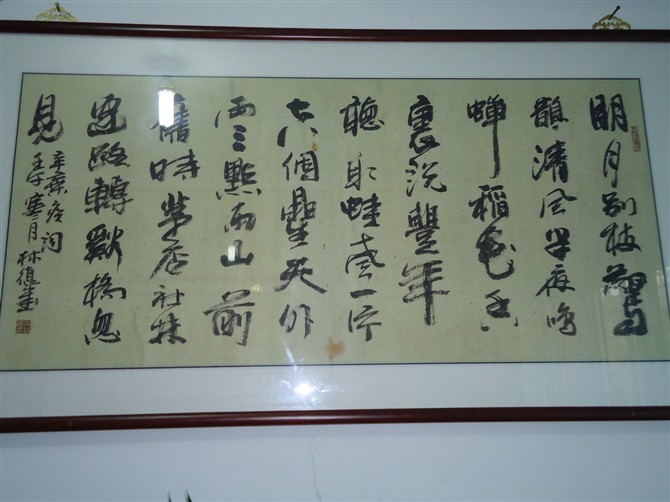 明月别枝驚
鵲清風半夜鳴
蟬稻花香
裏説豐年
聽取蛙聲一片
七八個星天外
兩三點雨山前
舊時茅店社林
邊路轉谿橋忽
見
辛棄疾詞
壬午寒月林